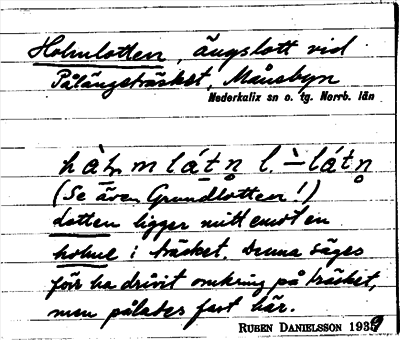 Holmlotten, ängslott vid
Pålängeträsket, Månsbyn
Nederkalix sn o. tg. Norrb. län
l. –látn̥
(Se även Grundlotten!)
Lotten ligger mitt emot en
holme i träsket. Denna säges
förr ha drivit omkring på träsket,
men pålades fast här.
RUBEN DANIELSSON 1939